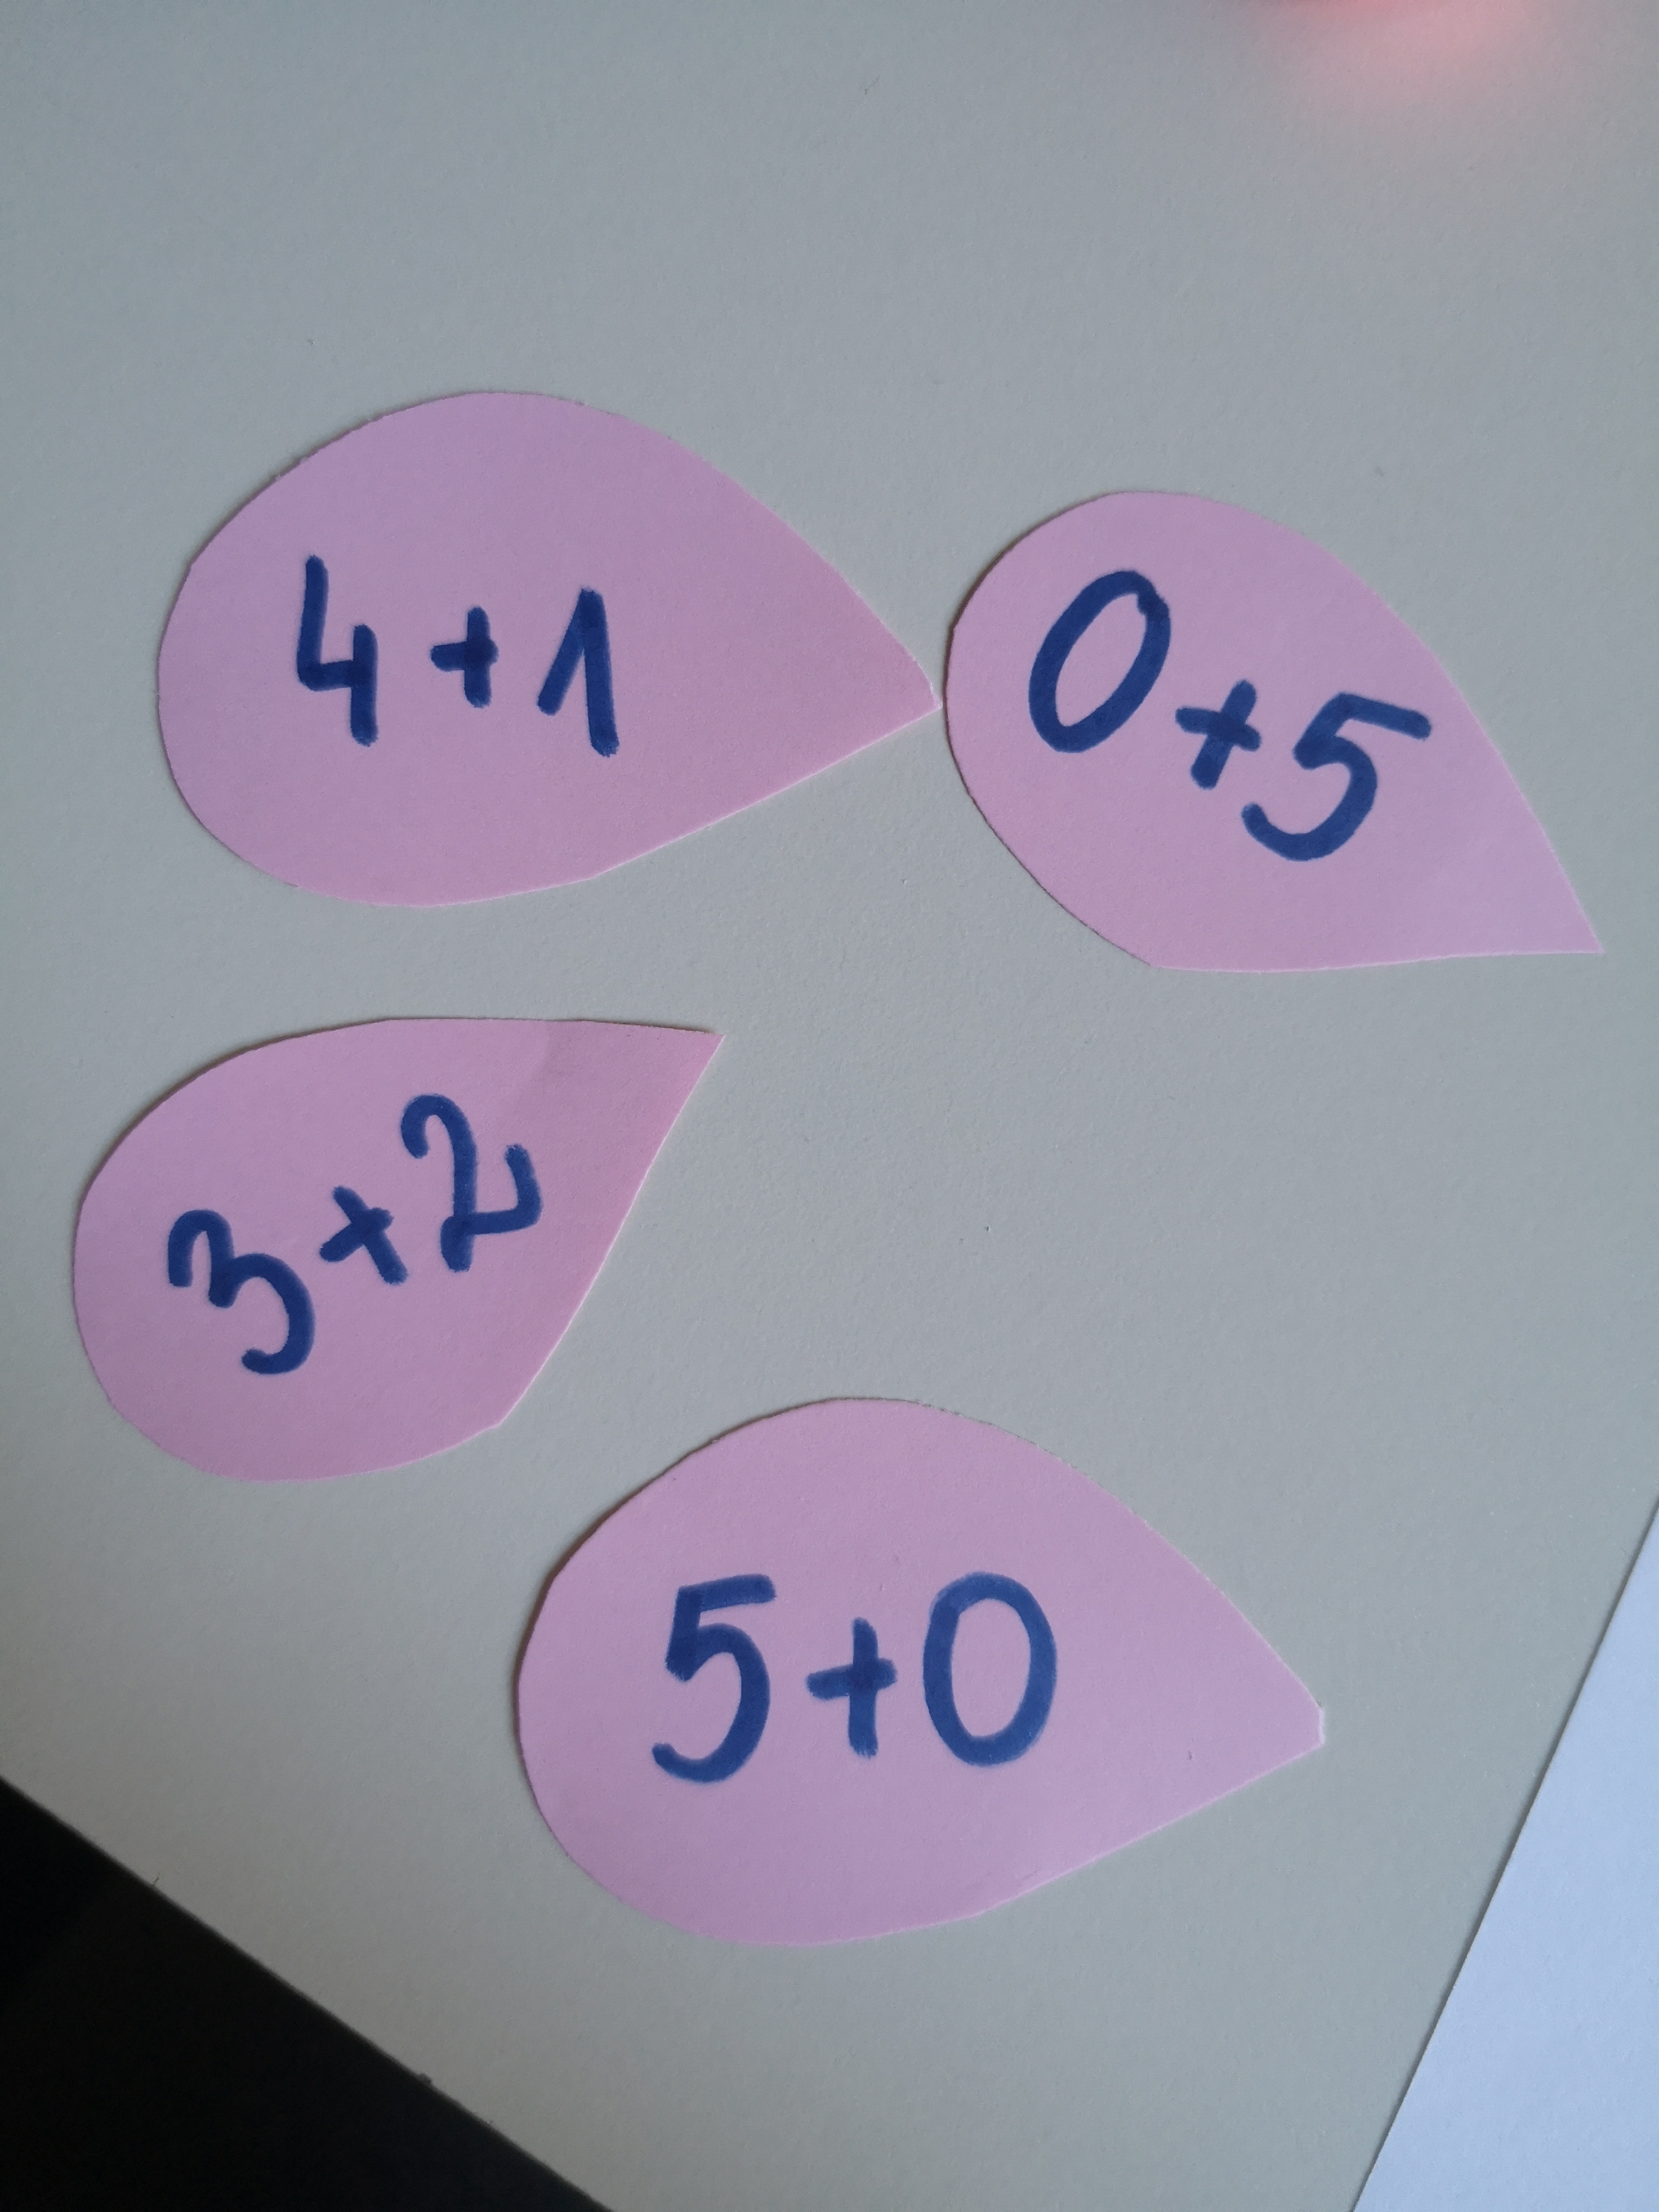 4+1
0+5
3+2
5+0